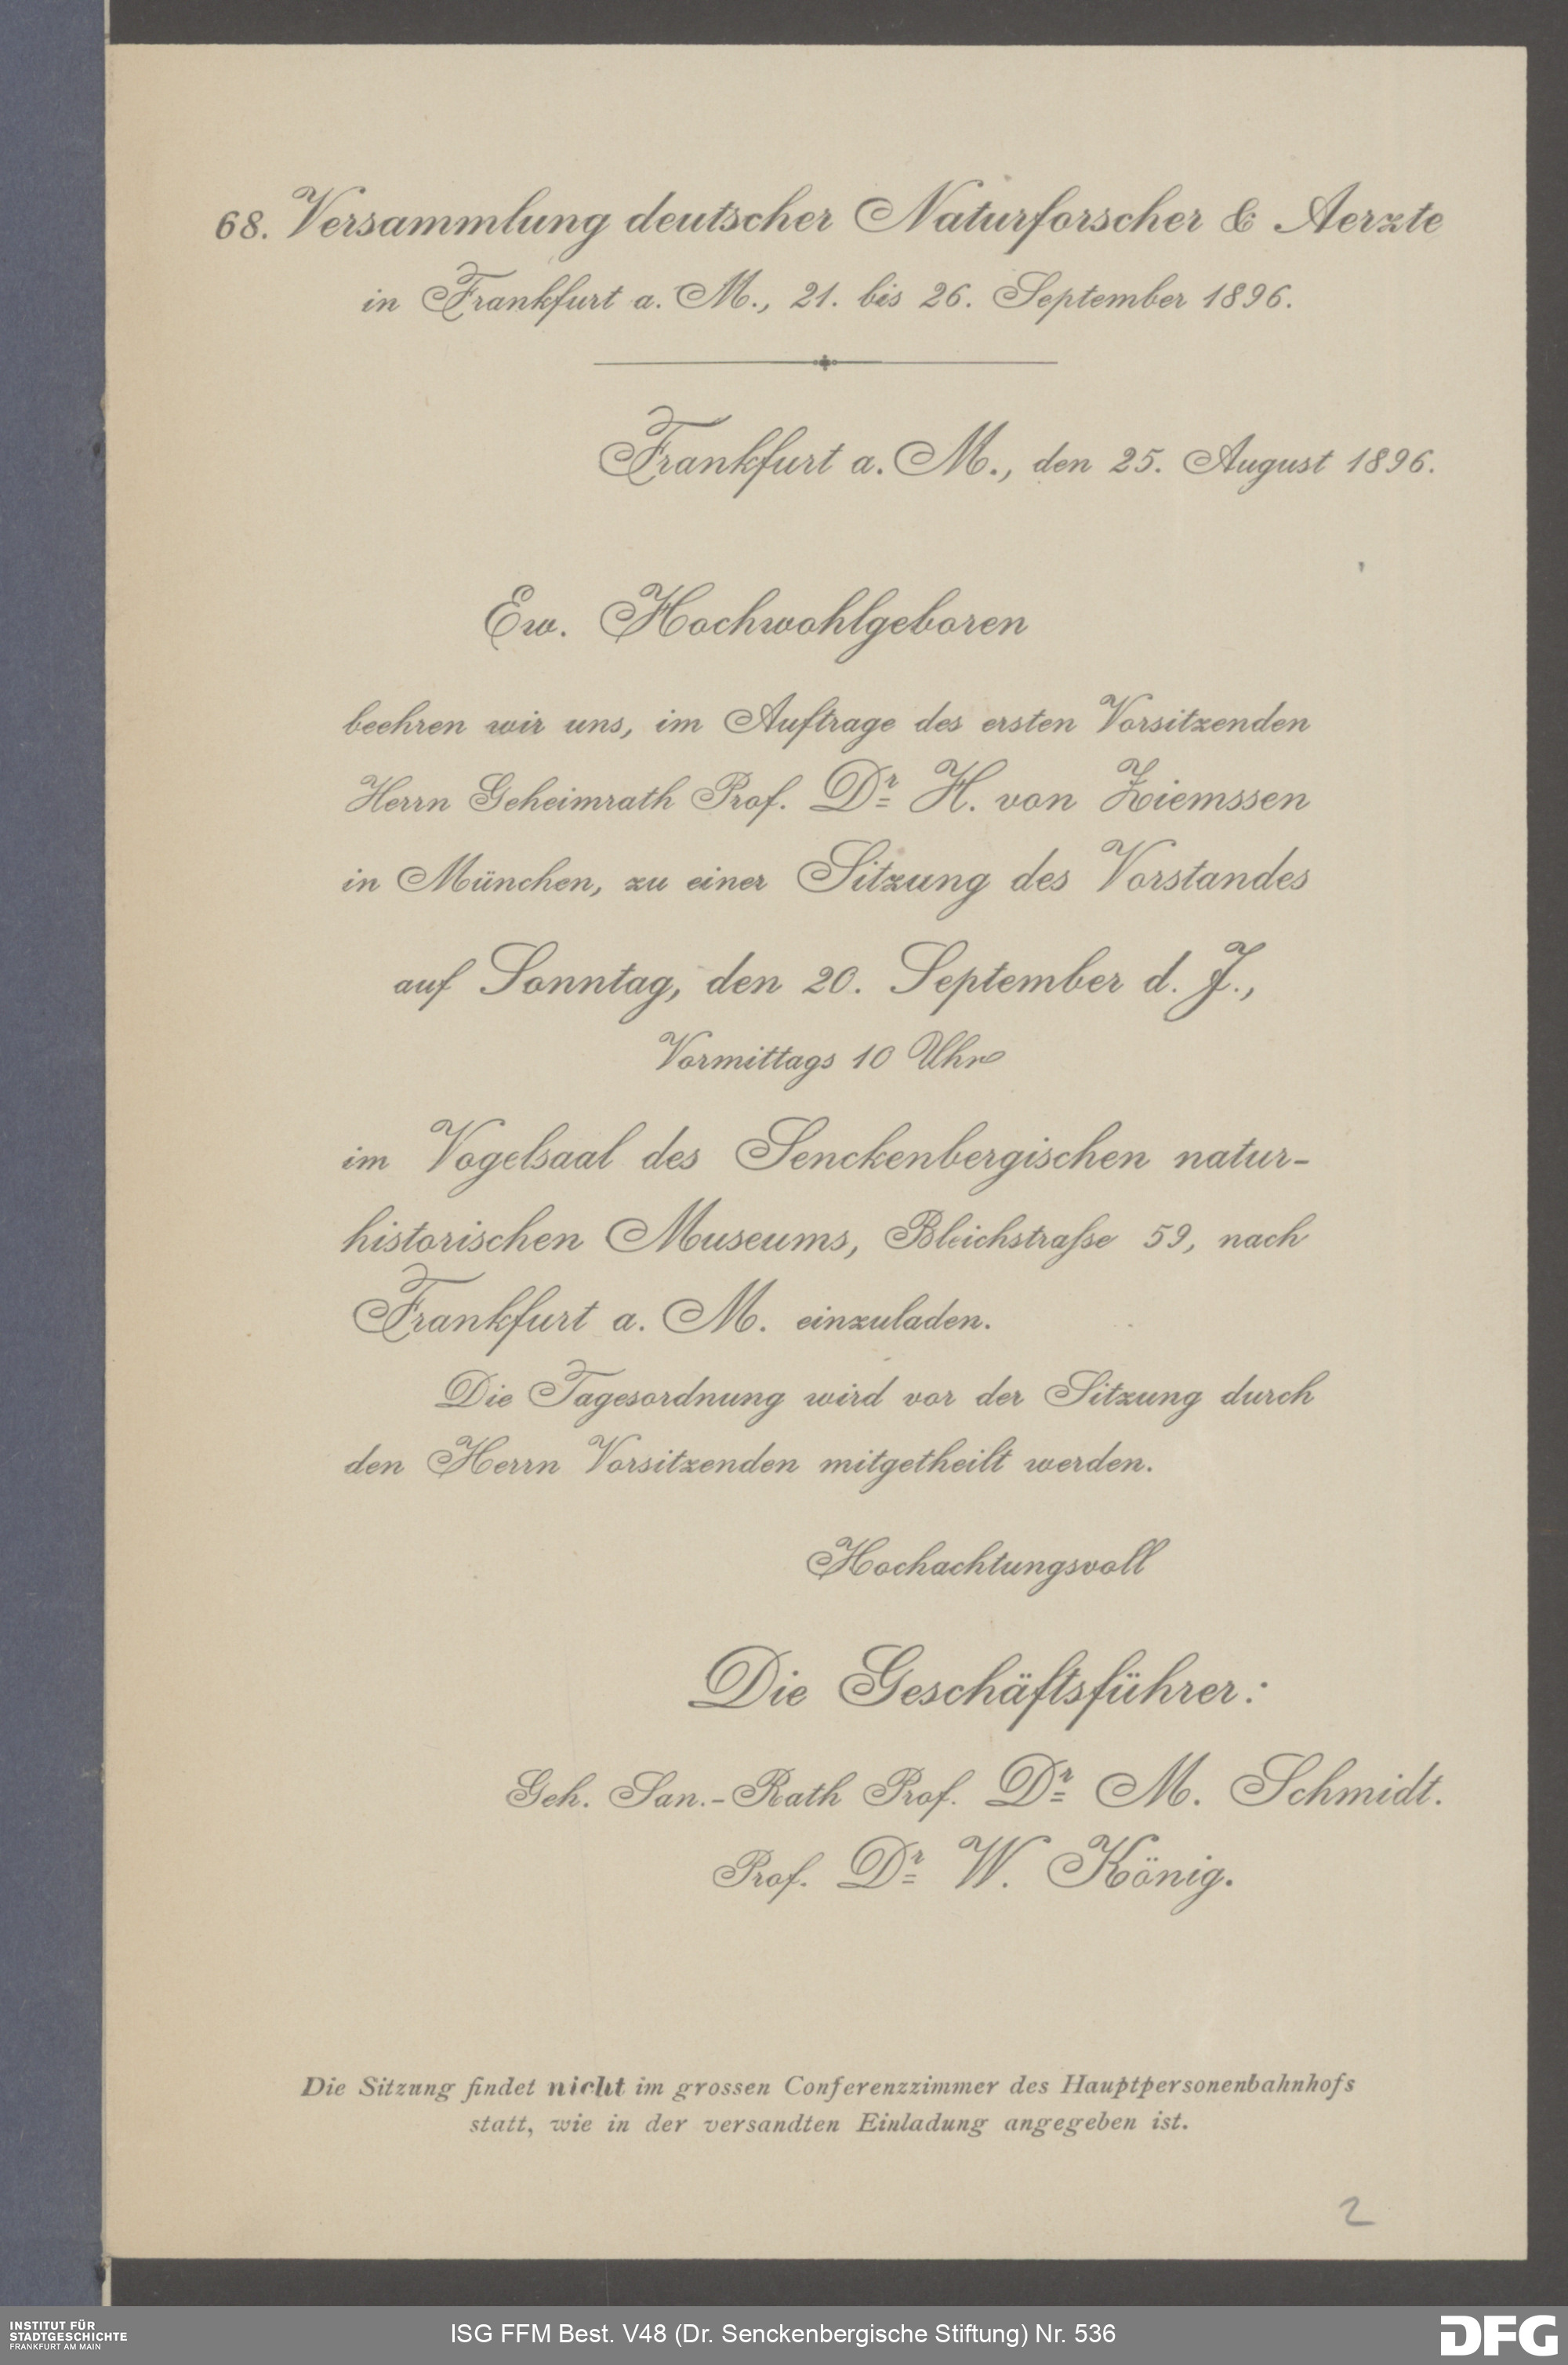 68. Versammlung deutscher Naturforscher & Aerzte
in Frankfurt a. M., 21. bis 26. September 1896.
Frankfurt a. M., den 25. August 1896.
Ew. Hochwohlgeboren
beehren wir uns, im Auftrage des ersten Vorsitzenden
Herrn Geheimrath Prof. Dr. H. von Ziemssen
in München, zu einer Sitzung des Vorstandes
auf Sonntag, den 20. September d. J.,
Vormittags 10 Uhr
im Vogelsaal des Senckenbergischen natur-
historischen Museums, Bleichstraſse 59, nach
Frankfurt a. M. einzuladen.
Die Tagesordnung wird vor der Sitzung durch
den Herrn Vorsitzenden mitgetheilt werden.
Hochachtungsvoll
Die Geschäftsführer:
Geh. San.-Rath Prof. Dr. M. Schmidt.
Prof. Dr. W. König.
Die Sitzung findet nicht im grossen Conferenzzimmer des Hauptpersonenbahnhofs
statt, wie in der versandten Einladung angegeben ist.
2
INSTITUT FÜR
STADTGESCHICHTE
FRANKFURT AM MAIN
ISG FFM Best. V48 (Dr. Senckenbergische Stiftung) Nr. 536
DFG